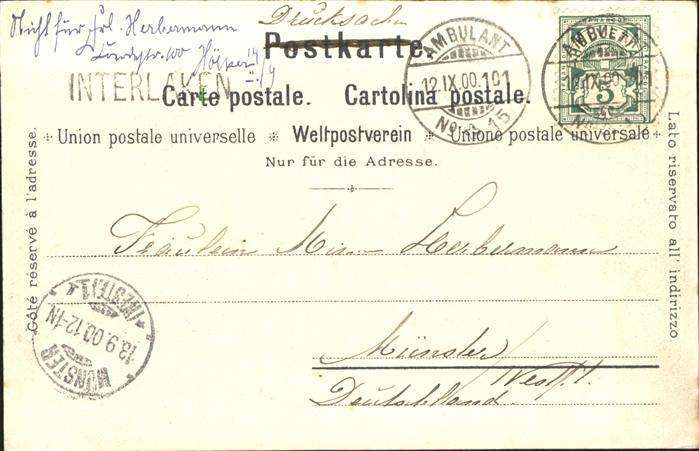 Nicht für Frl. Herbermann
Drucksache
Postkarte
INTERLAKEN
Carte postale. Cartolina postale.
Union postale universelle Weltpostverein Unione postale universale
Nur für die Adresse.
Côté réservé à l'adresse.
Lato riservato all' indirizzo
AMBULANT
12.IX.00.101
No
15
5
Fräulein Herbermann
Münster
Westf.
Deutschland.
MÜNSTER
13.9.00.12-1N
(WESTF.) 1